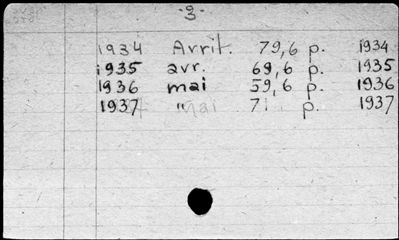 -3-
1934 Avril. 79,6 p. 1934
1935 avr. 69,6 p. 1935
1936 mai 59,6 p. 1936
1937 " mai 71 p. 1937